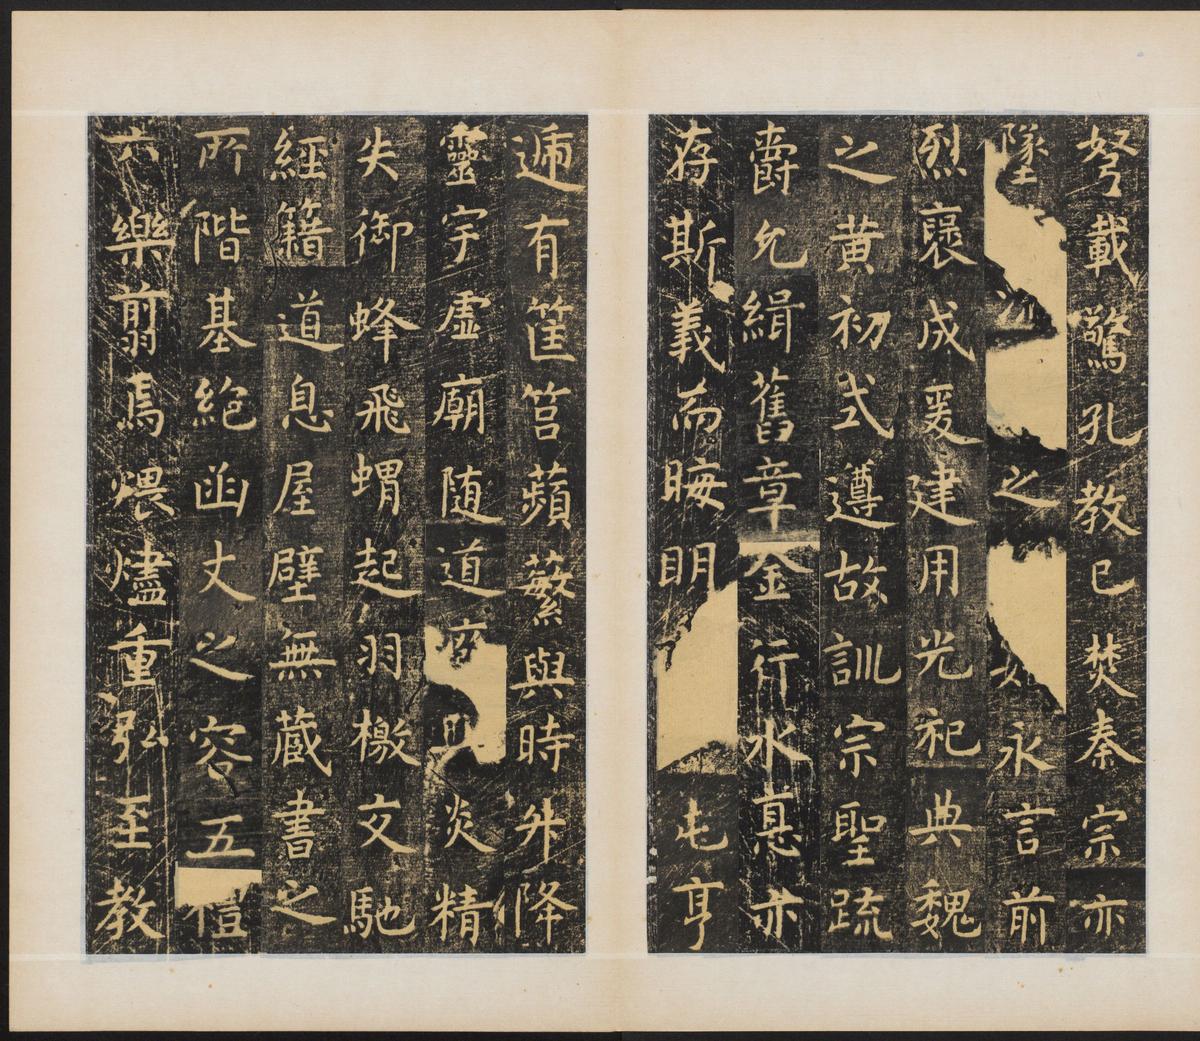 弩載驚孔教已焚秦宗亦
墜之如永言前
烈褒成爰建用光祀典魏
之黄初式遵故訓宗聖疏
爵允緝舊章金行水悳亦
存斯義而晦明屯亨
遞有筐筥蘋蘩與時升降
靈宇虛廟隨道炎精
失御蜂飛蝟起羽檄交馳
經籍道息屋壁無藏書之
所階基絕函丈之容五禮
六樂翦焉煨燼重弘至教